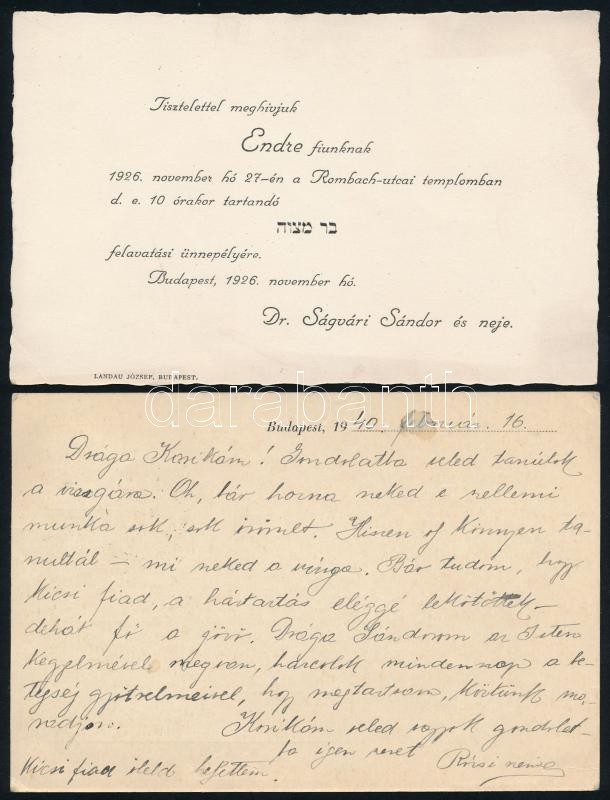 Tisztelettel meghivjuk
Endre fiunknak
1926. november hó 27-én a Rombach-utcai templomban
d. e. 10 órakor tartandó
בר מצוה
felavatási ünnepélyére.
Budapest, 1926. november hó.
Dr. Ságvári Sándor és neje.
LANDAU JÓZSEF, BUDAPEST.
darabanth
Budapest, 1940. február 16.
Drága Korikám! Gondolatba veled tanúlok
a vizsgára. Oh, bár hozna neked e szellemi
munka sok, sok örömet. Hiszen oly könnyen ta-
nultál — mi neked a vizsga. Bár tudom, hogy
kicsi fiad, a háztartás eléggé lekötöttek —
dehát fő a jövő. Drága Sándorom az Isten
kegyelméből megvan, harcolok mindennap a be-
tegség gyötrelmeivel, hogy megtartsam, köztünk ma-
radjon. Korikám veled vagyok gondolat-
ba igen szeret Rózsi
Kicsi fiad